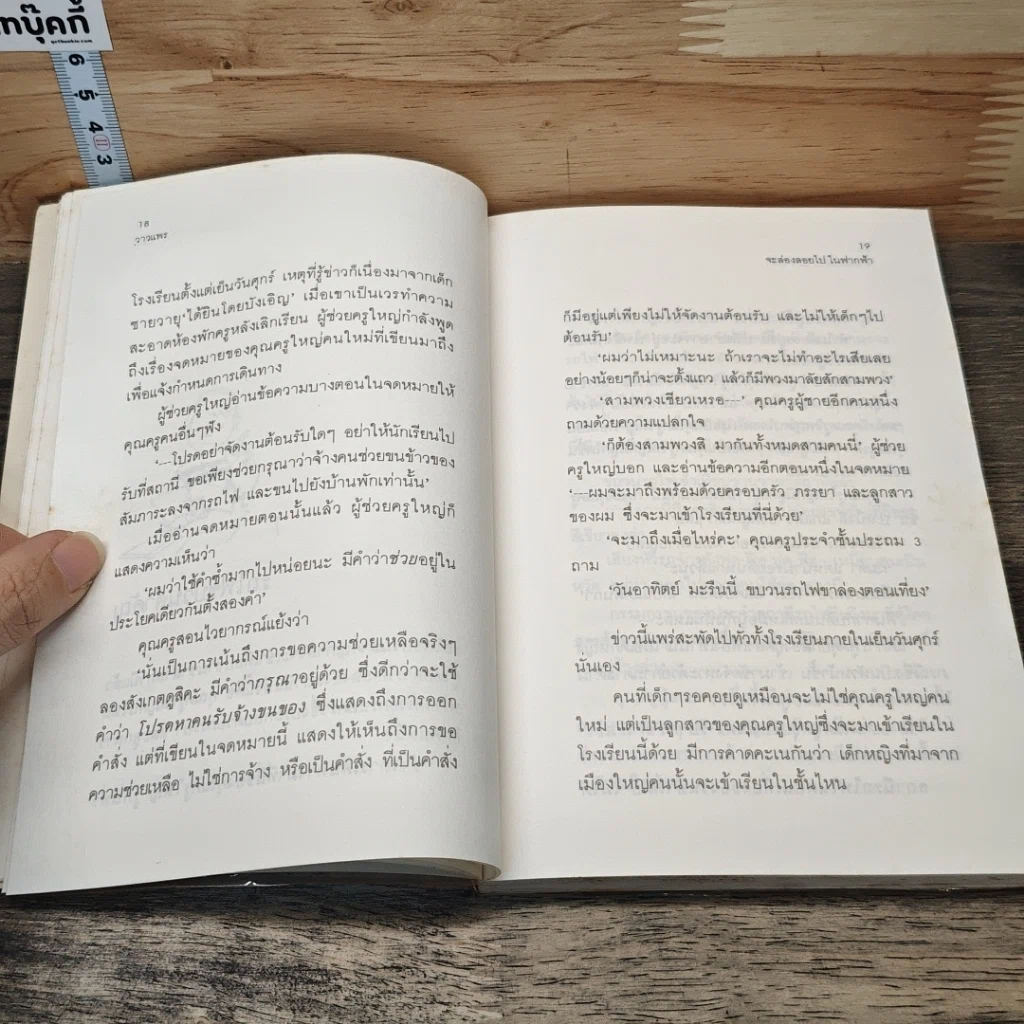 ทบุ๊คกี้
6
5
4
11
3
18
วาวแพร
โรงเรียนตั้งแต่เย็นวันศุกร์ เหตุที่รู้ข่าวก็เนื่องมาจากเด็ก
ชายวายุ'ได้ยินโดยบังเอิญ' เมื่อเขาเป็นเวรทำความ
สะอาดห้องพักครูหลังเลิกเรียน ผู้ช่วยครูใหญ่กำลังพูด
ถึงเรื่องจดหมายของคุณครูใหญ่คนใหม่ที่เขียนมาถึง
เพื่อแจ้งกำหนดการเดินทาง
ผู้ช่วยครูใหญ่อ่านข้อความบางตอนในจดหมายให้
คุณครูคนอื่นๆฟัง
'---โปรดอย่าจัดงานต้อนรับใดๆ อย่าให้นักเรียนไป
รับที่สถานี ขอเพียงช่วยกรุณาว่าจ้างคนช่วยขนข้าวของ
สัมภาระลงจากรถไฟ และขนไปยังบ้านพักเท่านั้น'
เมื่ออ่านจดหมายตอนนั้นแล้ว ผู้ช่วยครูใหญ่ก็
แสดงความเห็นว่า
'ผมว่าใช้คำซ้ำมากไปหน่อยนะ มีคำว่าช่วยอยู่ใน
ประโยคเดียวกันตั้งสองคำ'
คุณครูสอนไวยากรณ์แย้งว่า
'นั่นเป็นการเน้นถึงการขอความช่วยเหลือจริงๆ
ลองสังเกตดูสิคะ มีคำว่ากรุณาอยู่ด้วย ซึ่งดีกว่าจะใช้
คำว่า โปรดหาคนรับจ้างขนของ ซึ่งแสดงถึงการออก
คำสั่ง แต่ที่เขียนในจดหมายนี้ แสดงให้เห็นถึงการขอ
ความช่วยเหลือ ไม่ใช่การจ้าง หรือเป็นคำสั่ง ที่เป็นคำสั่ง
19
จะล่องลอยไป ในฟากฟ้า
ก็มีอยู่แต่เพียงไม่ให้จัดงานต้อนรับ และไม่ให้เด็กๆไป
ต้อนรับ'
'ผมว่าไม่เหมาะนะ ถ้าเราจะไม่ทำอะไรเสียเลย
อย่างน้อยๆก็น่าจะตั้งแถว แล้วก็มีพวงมาลัยสักสามพวง'
'สามพวงเชียวเหรอ---' คุณครูผู้ชายอีกคนหนึ่ง
ถามด้วยความแปลกใจ
'ก็ต้องสามพวงสิ มากันทั้งหมดสามคนนี่' ผู้ช่วย
ครูใหญ่บอก และอ่านข้อความอีกตอนหนึ่งในจดหมาย
'---ผมจะมาถึงพร้อมด้วยครอบครัว ภรรยา และลูกสาว
ของผม ซึ่งจะมาเข้าโรงเรียนที่นี่ด้วย'
'จะมาถึงเมื่อไหร่คะ' คุณครูประจำชั้นประถม 3
ถาม
'วันอาทิตย์ มะรืนนี้ ขบวนรถไฟขาล่องตอนเที่ยง'
ข่าวนี้แพร่สะพัดไปทั่วทั้งโรงเรียนภายในเย็นวันศุกร์
นั่นเอง
คนที่เด็กๆรอคอยดูเหมือนจะไม่ใช่คุณครูใหญ่คน
ใหม่ แต่เป็นลูกสาวของคุณครูใหญ่ซึ่งจะมาเข้าเรียนใน
โรงเรียนนี้ด้วย มีการคาดคะเนกันว่า เด็กหญิงที่มาจาก
เมืองใหญ่คนนั้นจะเข้าเรียนในชั้นไหน